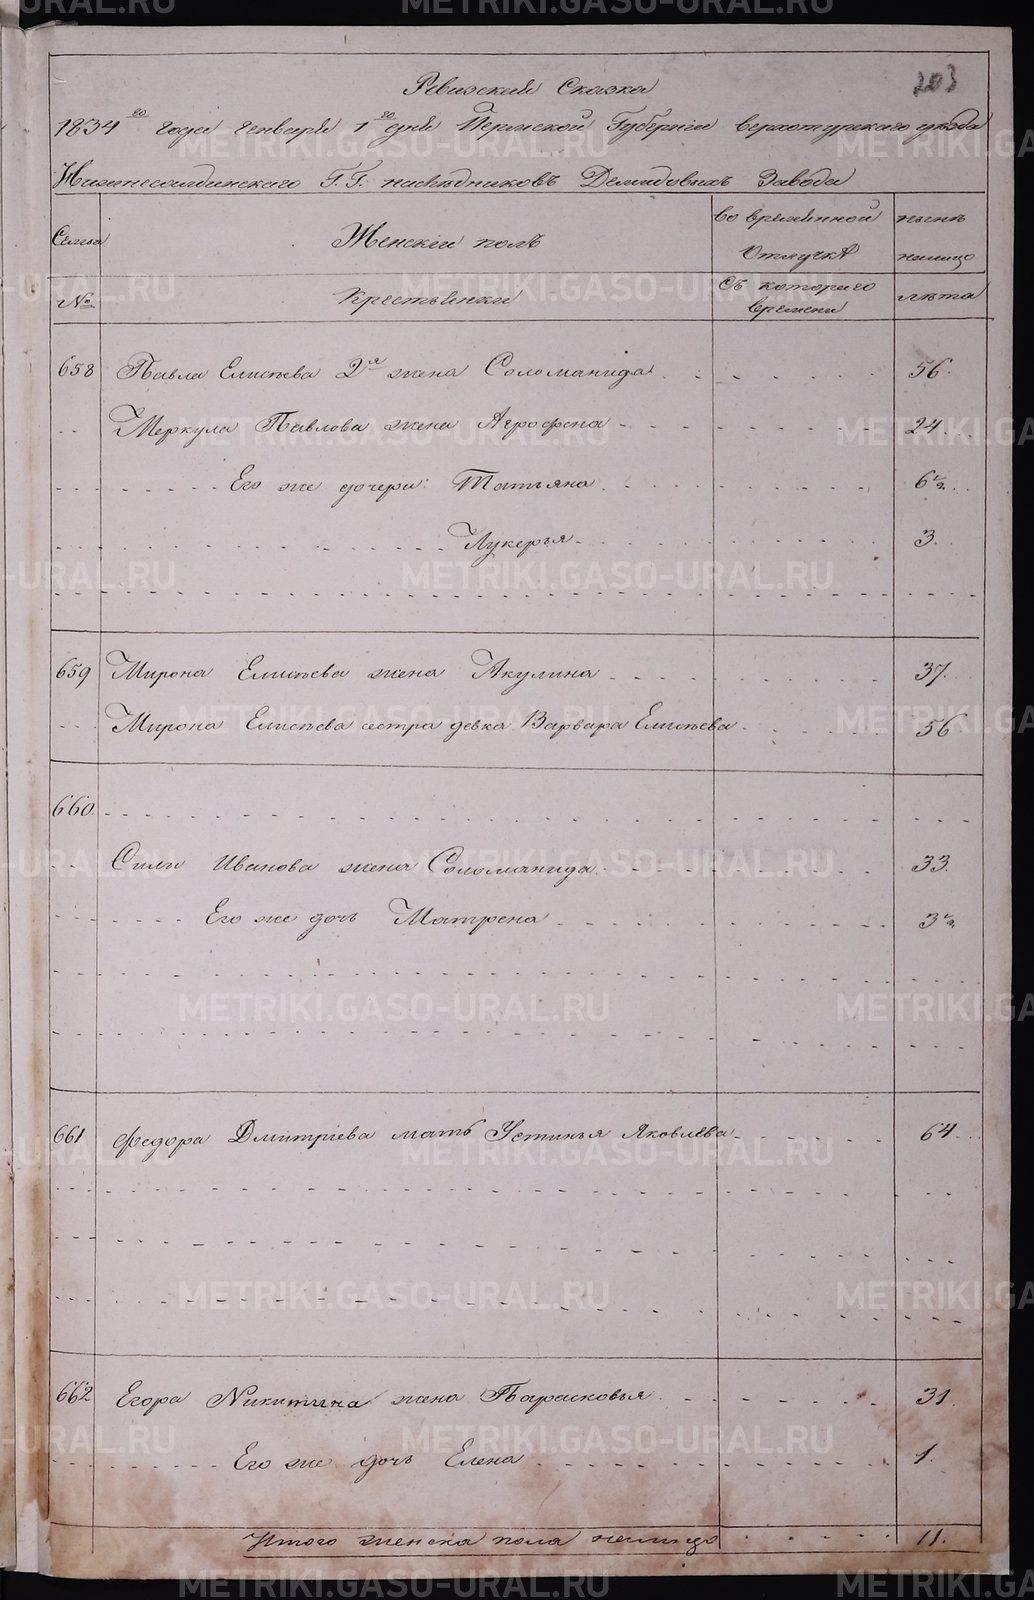 203
Ревизская Сказка
1834го года генваря 1го дня Пермской Губерніи верхотурскаго уезда
Нижнесалдинскаго Г.Г. наследниковъ Демидовыхъ Завода
Семьи
Женскій полъ
во временной отлучкѣ
нынѣ налицо
№
Крестьянки
Съ котораго времени
лѣта
658 Павла Елисѣева 2я жена Соломанида 56.
Меркула Павлова жена Агрофена 24
Его же дочери: Татьяна 6½
Лукерья 3.
659 Мирона Елисѣева жена Акулина 37.
Мирона Елисѣева сестра девка Варвара Елисѣева 56
660
Силы Иванова жена Соломанида 33.
Его же дочь Матрена 3½
661 Федора Дмитріева мать Устинья Яковлева 64
662 Егора Никитина жена Парасковья 31.
Его же дочь Елена 1.
Итого женска пола налицо 11.
METRIKI.GASO-URAL.RU